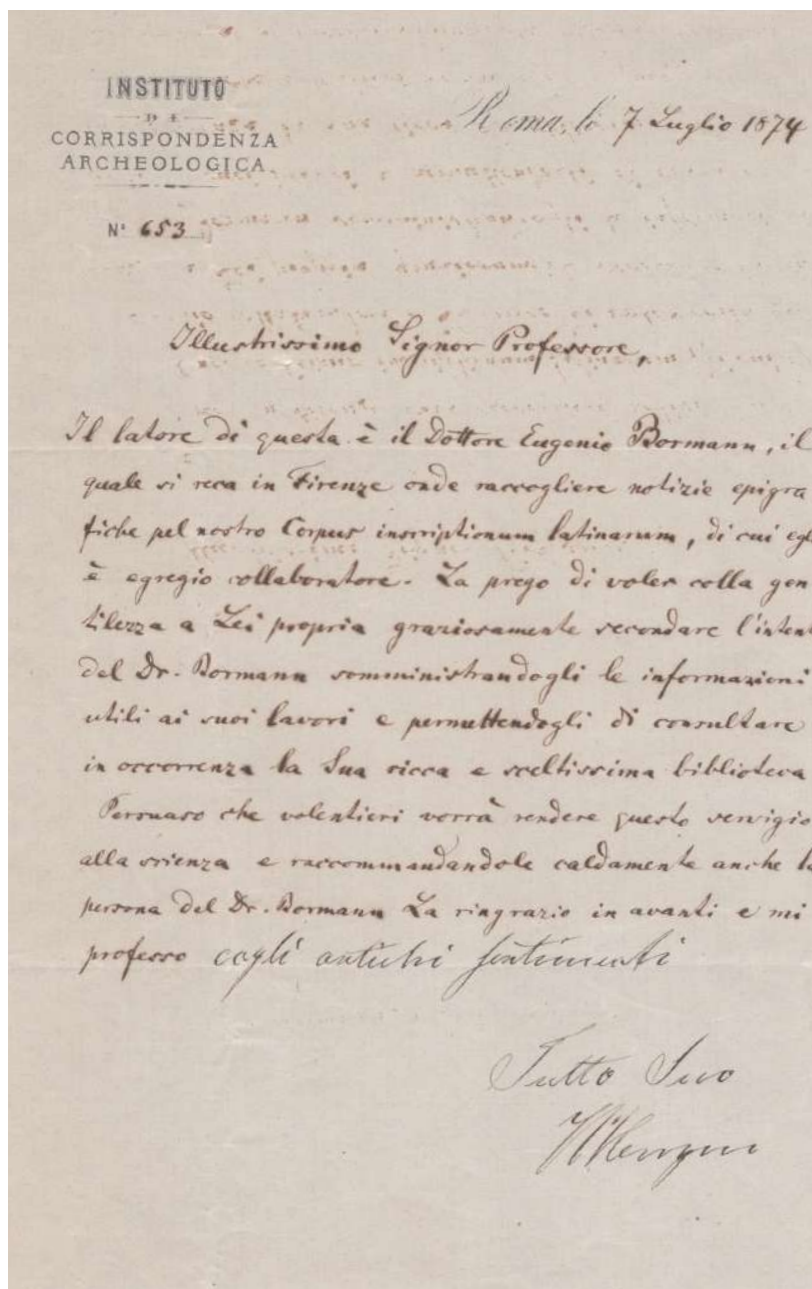 INSTITUTO
DI
CORRISPONDENZA
ARCHEOLOGICA
Roma, li 7 Luglio 1874
N° 653
Illustrissimo Signor Professore,
Il latore di questa è il Dottore Eugenio Bormann, il
quale si reca in Firenze onde raccogliere notizie epigra
fiche pel nostro Corpus inscriptionum latinarum, di cui egl
è egregio collaboratore. La prego di voler colla gen
tilezza a Lei propria graziosamente secondare l'intent
del Dr. Bormann somministrandogli le informazioni
utili ai suoi lavori e permettendogli di consultare
in occorrenza la Sua ricca e sceltissima biblioteca
Persuaso che volentieri vorrà rendere questo servigio
alla scienza e raccommandandole caldamente anche la
persona del Dr. Bormann La ringrazio in avanti e mi
professo cogli antichi sentimenti
Tutto Suo
WHenzen